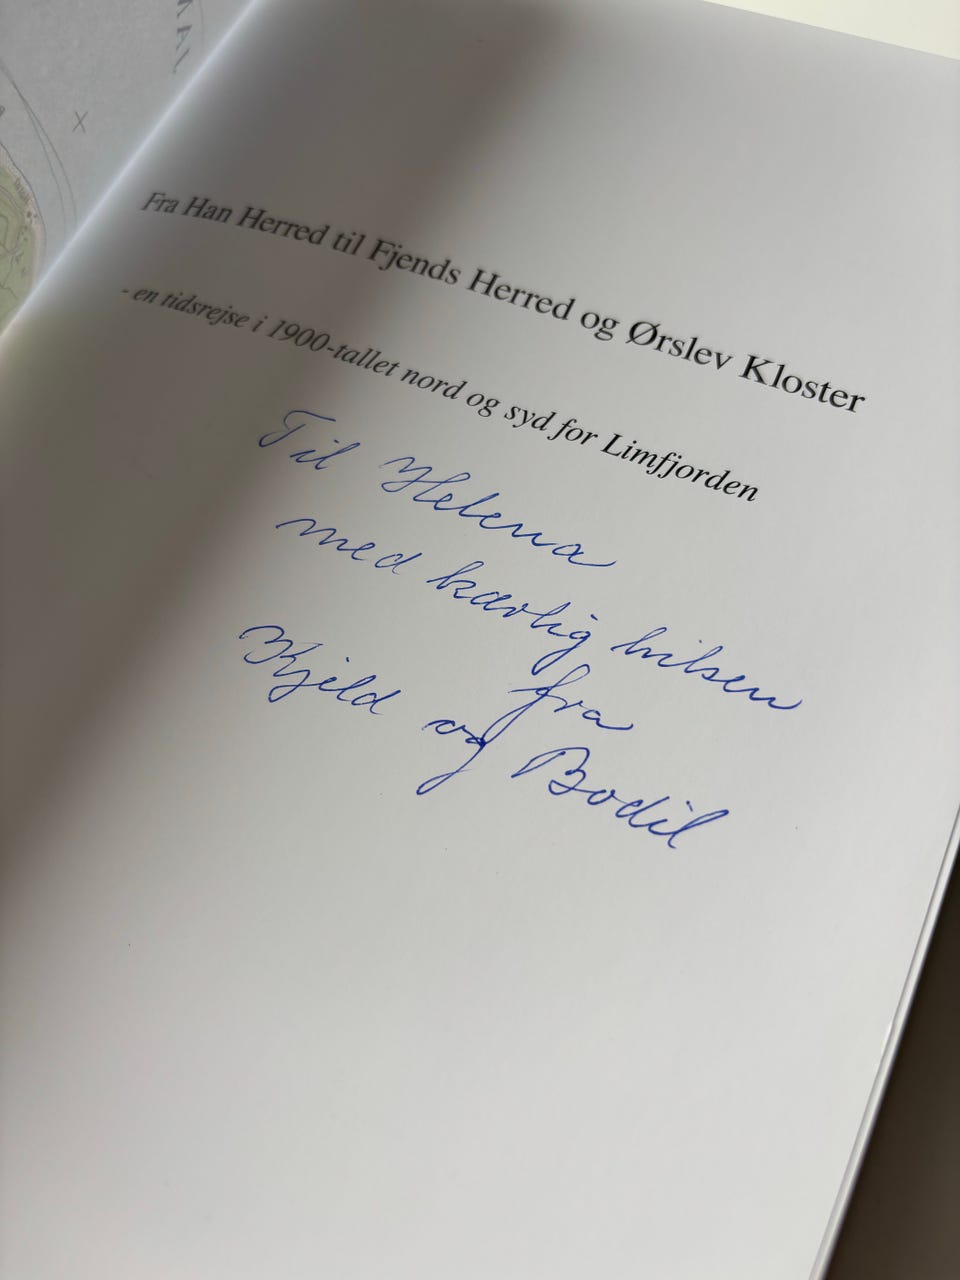 Fra Han Herred til Fjends Herred og Ørslev Kloster
- en tidsrejse i 1900-tallet nord og syd for Limfjorden
Til Helena
med kærlig hilsen
fra
Kjeld og Bodil